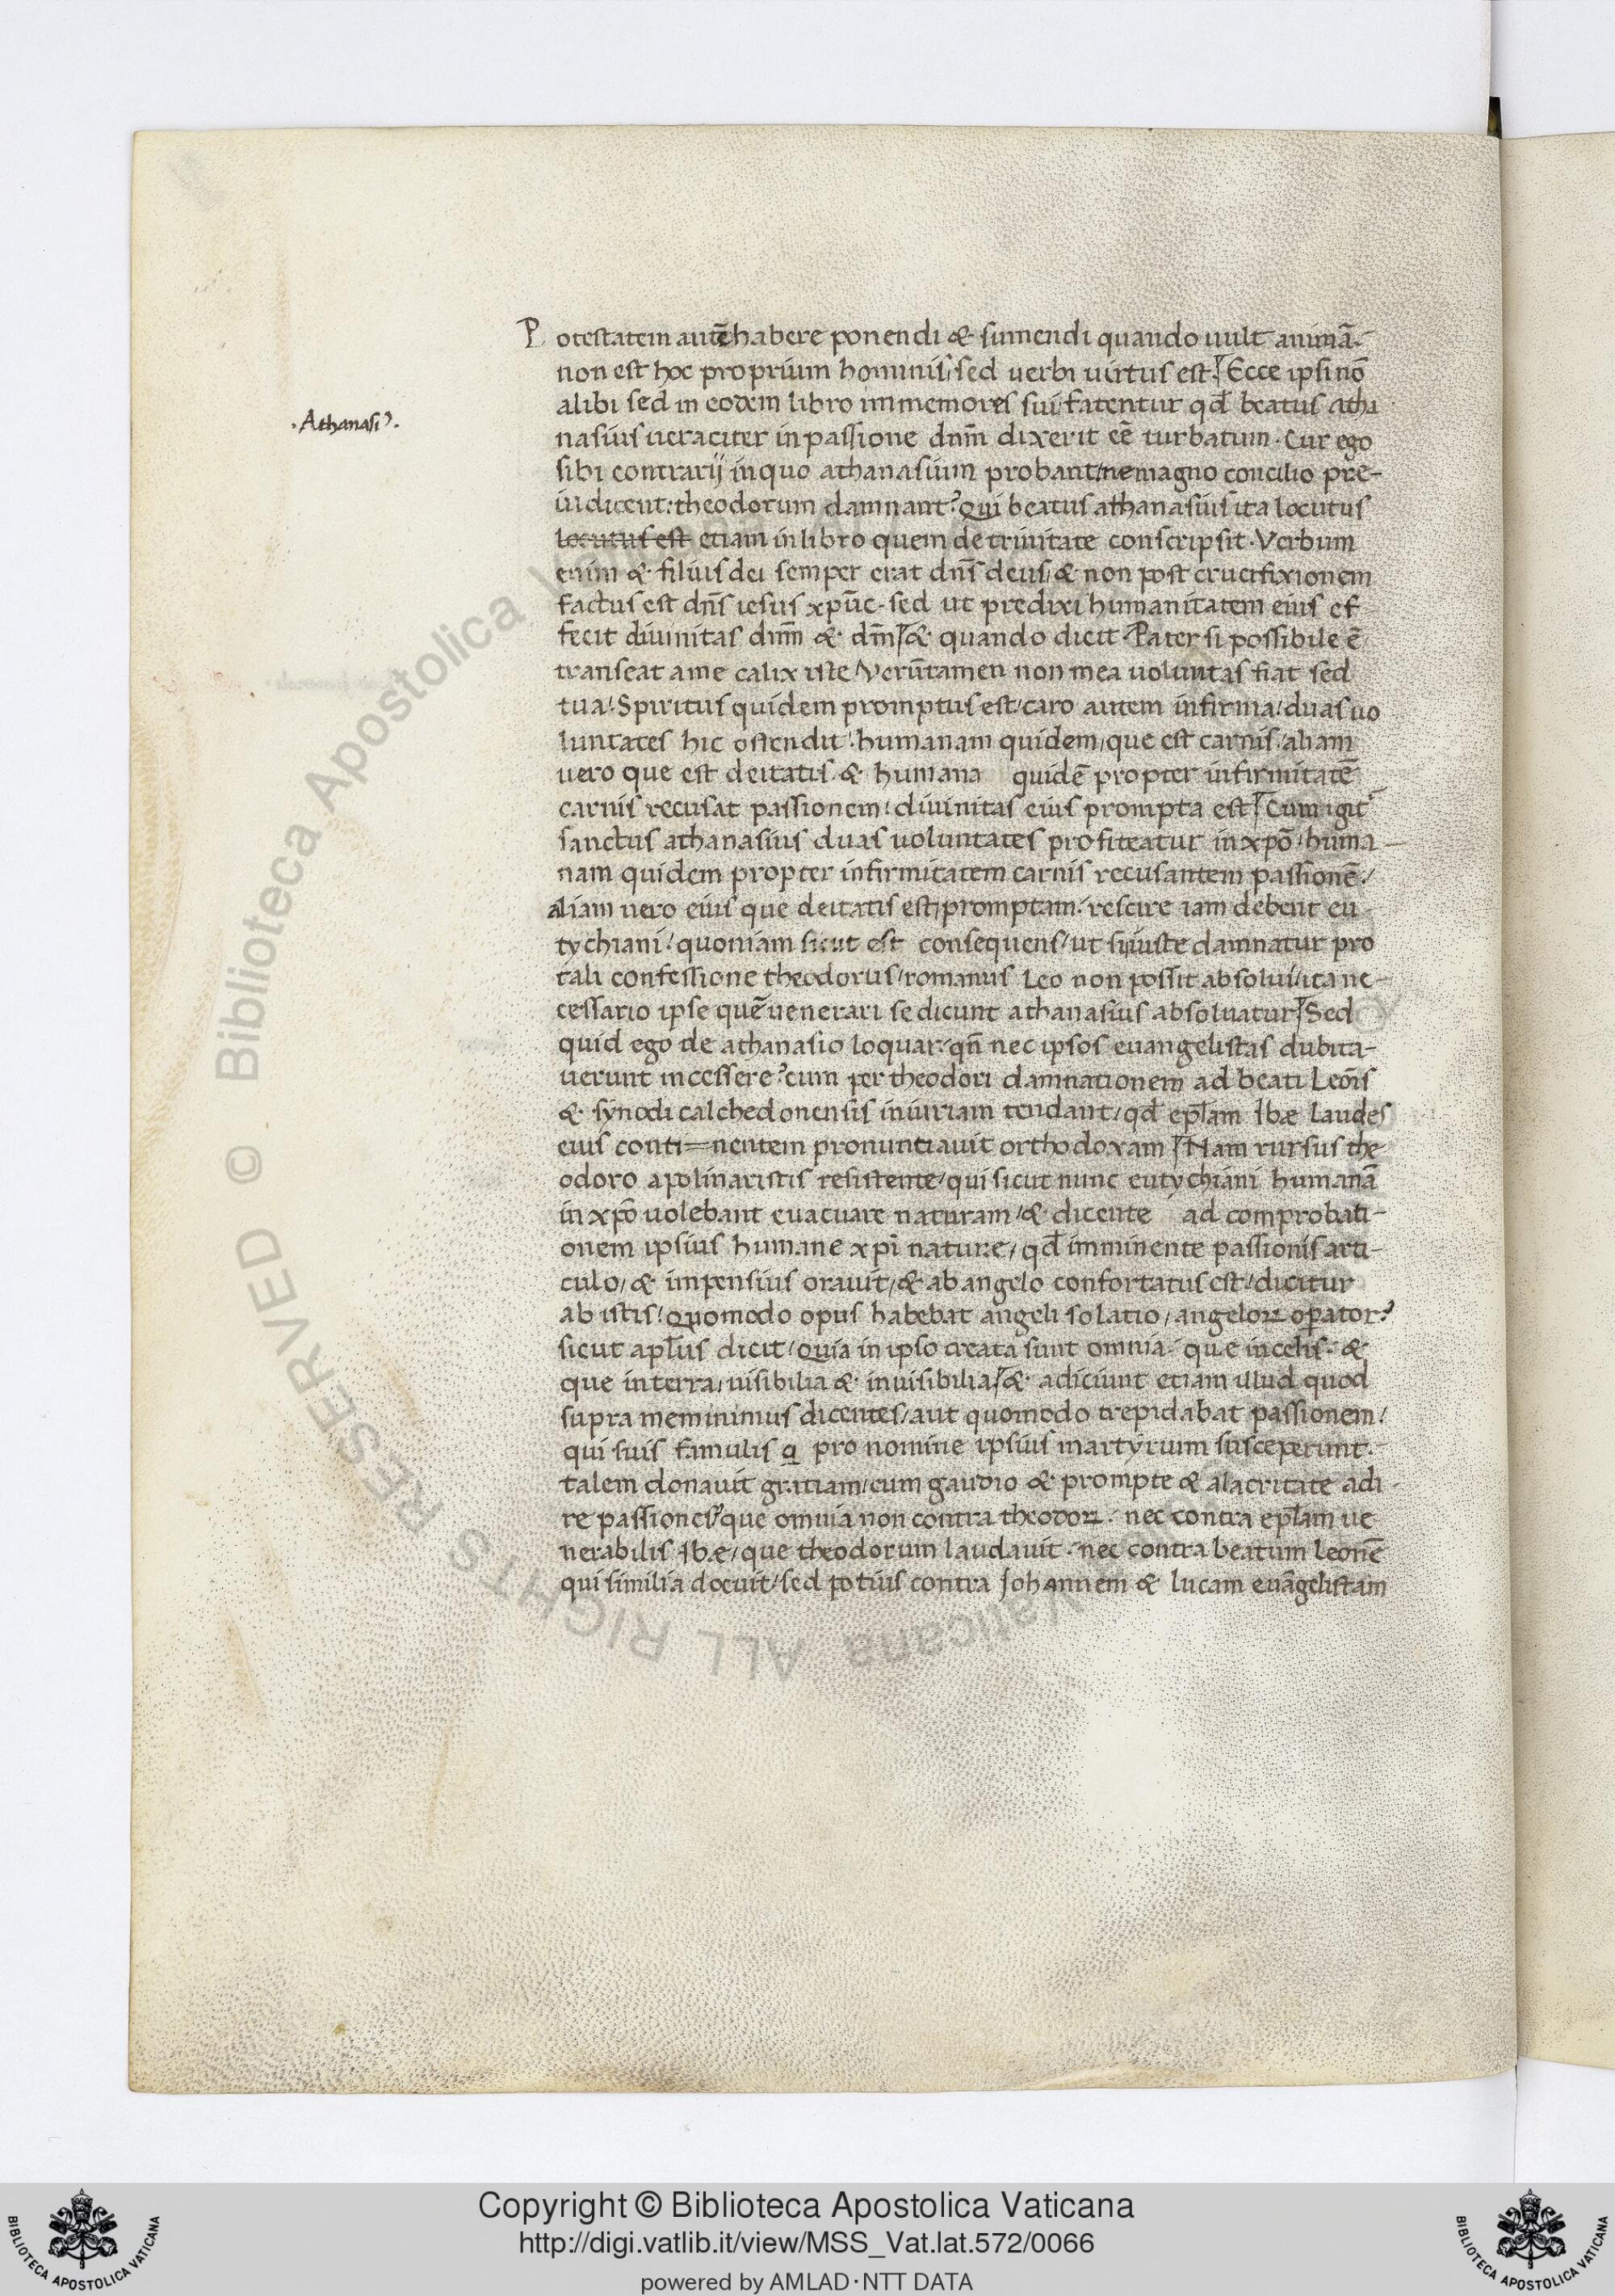 Potestatem autē habere ponendi & summendi quando uult animā.
non est hoc proprium hominis, sed uerbi uirtus est. Ecce ipsi nō
alibi sed in eodem libro immemores sui fatentur qđ beatus atha
·Athanasi⁹·
nasius ueraciter in passione dnm̄ dixerit eē turbatum. Cur ego
sibi contrarij in quo athanasium probant/ne magno concilio pre-
iudicent: theodorum damnant? Qui beatus athanasius ita locutus
locutus est etiam in libro quem de trinitate conscripsit. Verbum
enim & filius dei semper erat dn̄s deus/& non post crucifixionem
factus est dn̄s iesus xpūc. sed ut predixi humanitatem eius ef
fecit diuinitas dnm̄ & dm̄ & quando dicit Pater si possibile ē
transeat a me calix iste/Verūtamen non mea uoluntas fiat sed
tua. Spiritus quidem promptus est/caro autem infirma/duas uo
luntates hic ostendit. humanam quidem, que est carnis/aliam
uero que est deitatis. & humana quidē propter infirmitatē
carnis recusat passionem/diuinitas eius prompta est Cum igit᷑
sanctus athanasius duas uoluntates profiteatur in xpō/huma-
nam quidem propter infirmitatem carnis recusantem passionē/
aliam uero eius que deitatis est/promptam. rescire iam debent eu-
tychiani/quoniam sicut est consequens/ut si iuste damnatur pro
tali confessione theodorus/romanus Leo non possit absolui/ita ne-
cessario ipse quē uenerari se dicunt athanasius absoluatur Sed
quid ego de athanasio loquar. qn̄ nec ipsos euangelistas dubita-
uerunt incessere? cum per theodori damnationem ad beati Leōis
& synodi calchedonensis iniuriam tendant/qđ ep̄lam Ibæ Laudes
eius conti=nentem pronuntiauit orthodoxam Nam rursus the
odoro apolinaristis resistente/qui sicut nunc eutychiani humanā
in xpō uolebant euacuare naturam/& dicente ad comprobati-
onem ipsius humane xp̄i nature/qđ imminente passionis arti-
culo/& impensius orauit/& ab angelo confortatus est/dicitur
ab istis/Quomodo opus habebat angeli solatio/angeloꝝ opator?
sicut ap̄lus dicit/Quia in ipso creata sunt omnia. que in celis. &
que in terra/uisibilia & inuisibilia & adiciunt etiam illud quod
supra meminimus dicentes/aut quomodo trepidabat passionem/
qui suis famulis q pro nomine ipsius martyrum susceperunt.
talem donauit gratiam/cum gaudio & prompte & alacritate adi-
re passiones? que omnia non contra theodoꝝ. nec contra ep̄lam ue
nerabilis Ibæ/que theodorum laudauit. nec contra beatum leonē
qui similia docuit/sed potius contra Johannem & lucam euāgelistam
Copyright © Biblioteca Apostolica Vaticana
http://digi.vatlib.it/view/MSS_Vat.lat.572/0066
powered by AMLAD·NTT DATA
BIBLIOTECA APOSTOLICA VATICANA
BIBLIOTECA APOSTOLICA VATICANA